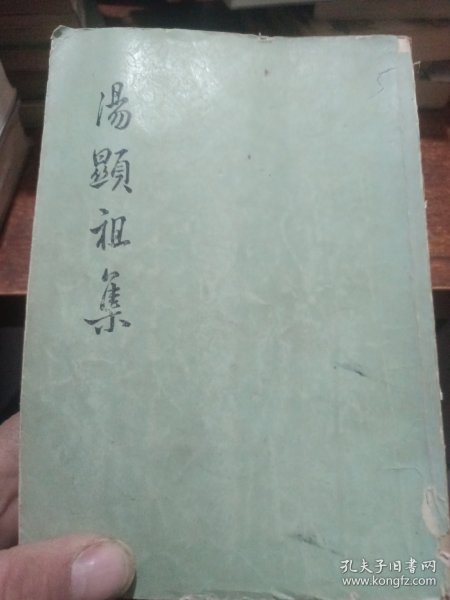 湯顯祖集
5
孔夫子旧书网
www.kongfz.com